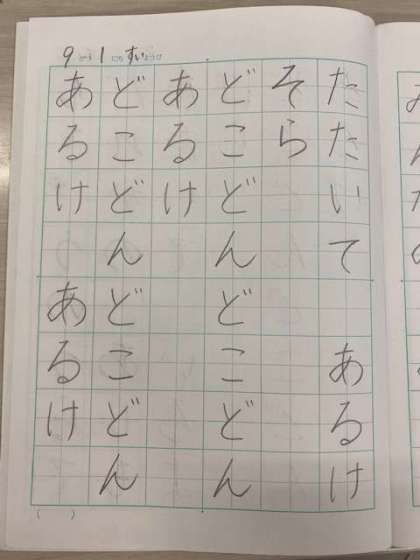 9がつ1にちすいようび
たたいて　あるけ
そら
どこどんどこどん
あるけ
どこどんどこどん
あるけ　あるけ